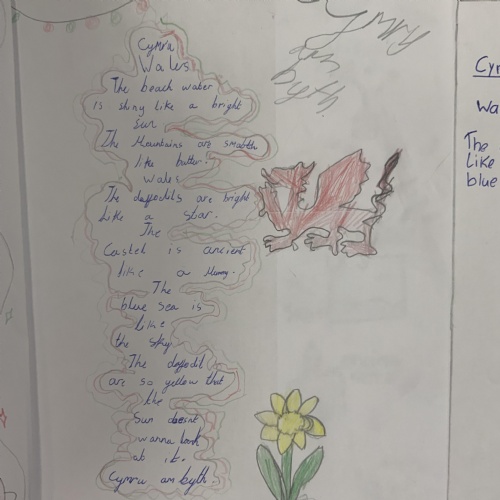 Cymru
Wales
The beach water
is shiny like a bright
Sun
The Mountains are smooth
like butter!
Wales
The daffodils are bright
like a star.
The
Castel is ancient
like a Mummy.
The
blue sea is
like
the sky
The daffodil
are so yellow that
the
Sun doesnt
wanna look
at it.
Cymru am byth.
Cymru
am
byth
Cyr
Wa
The
like
blue